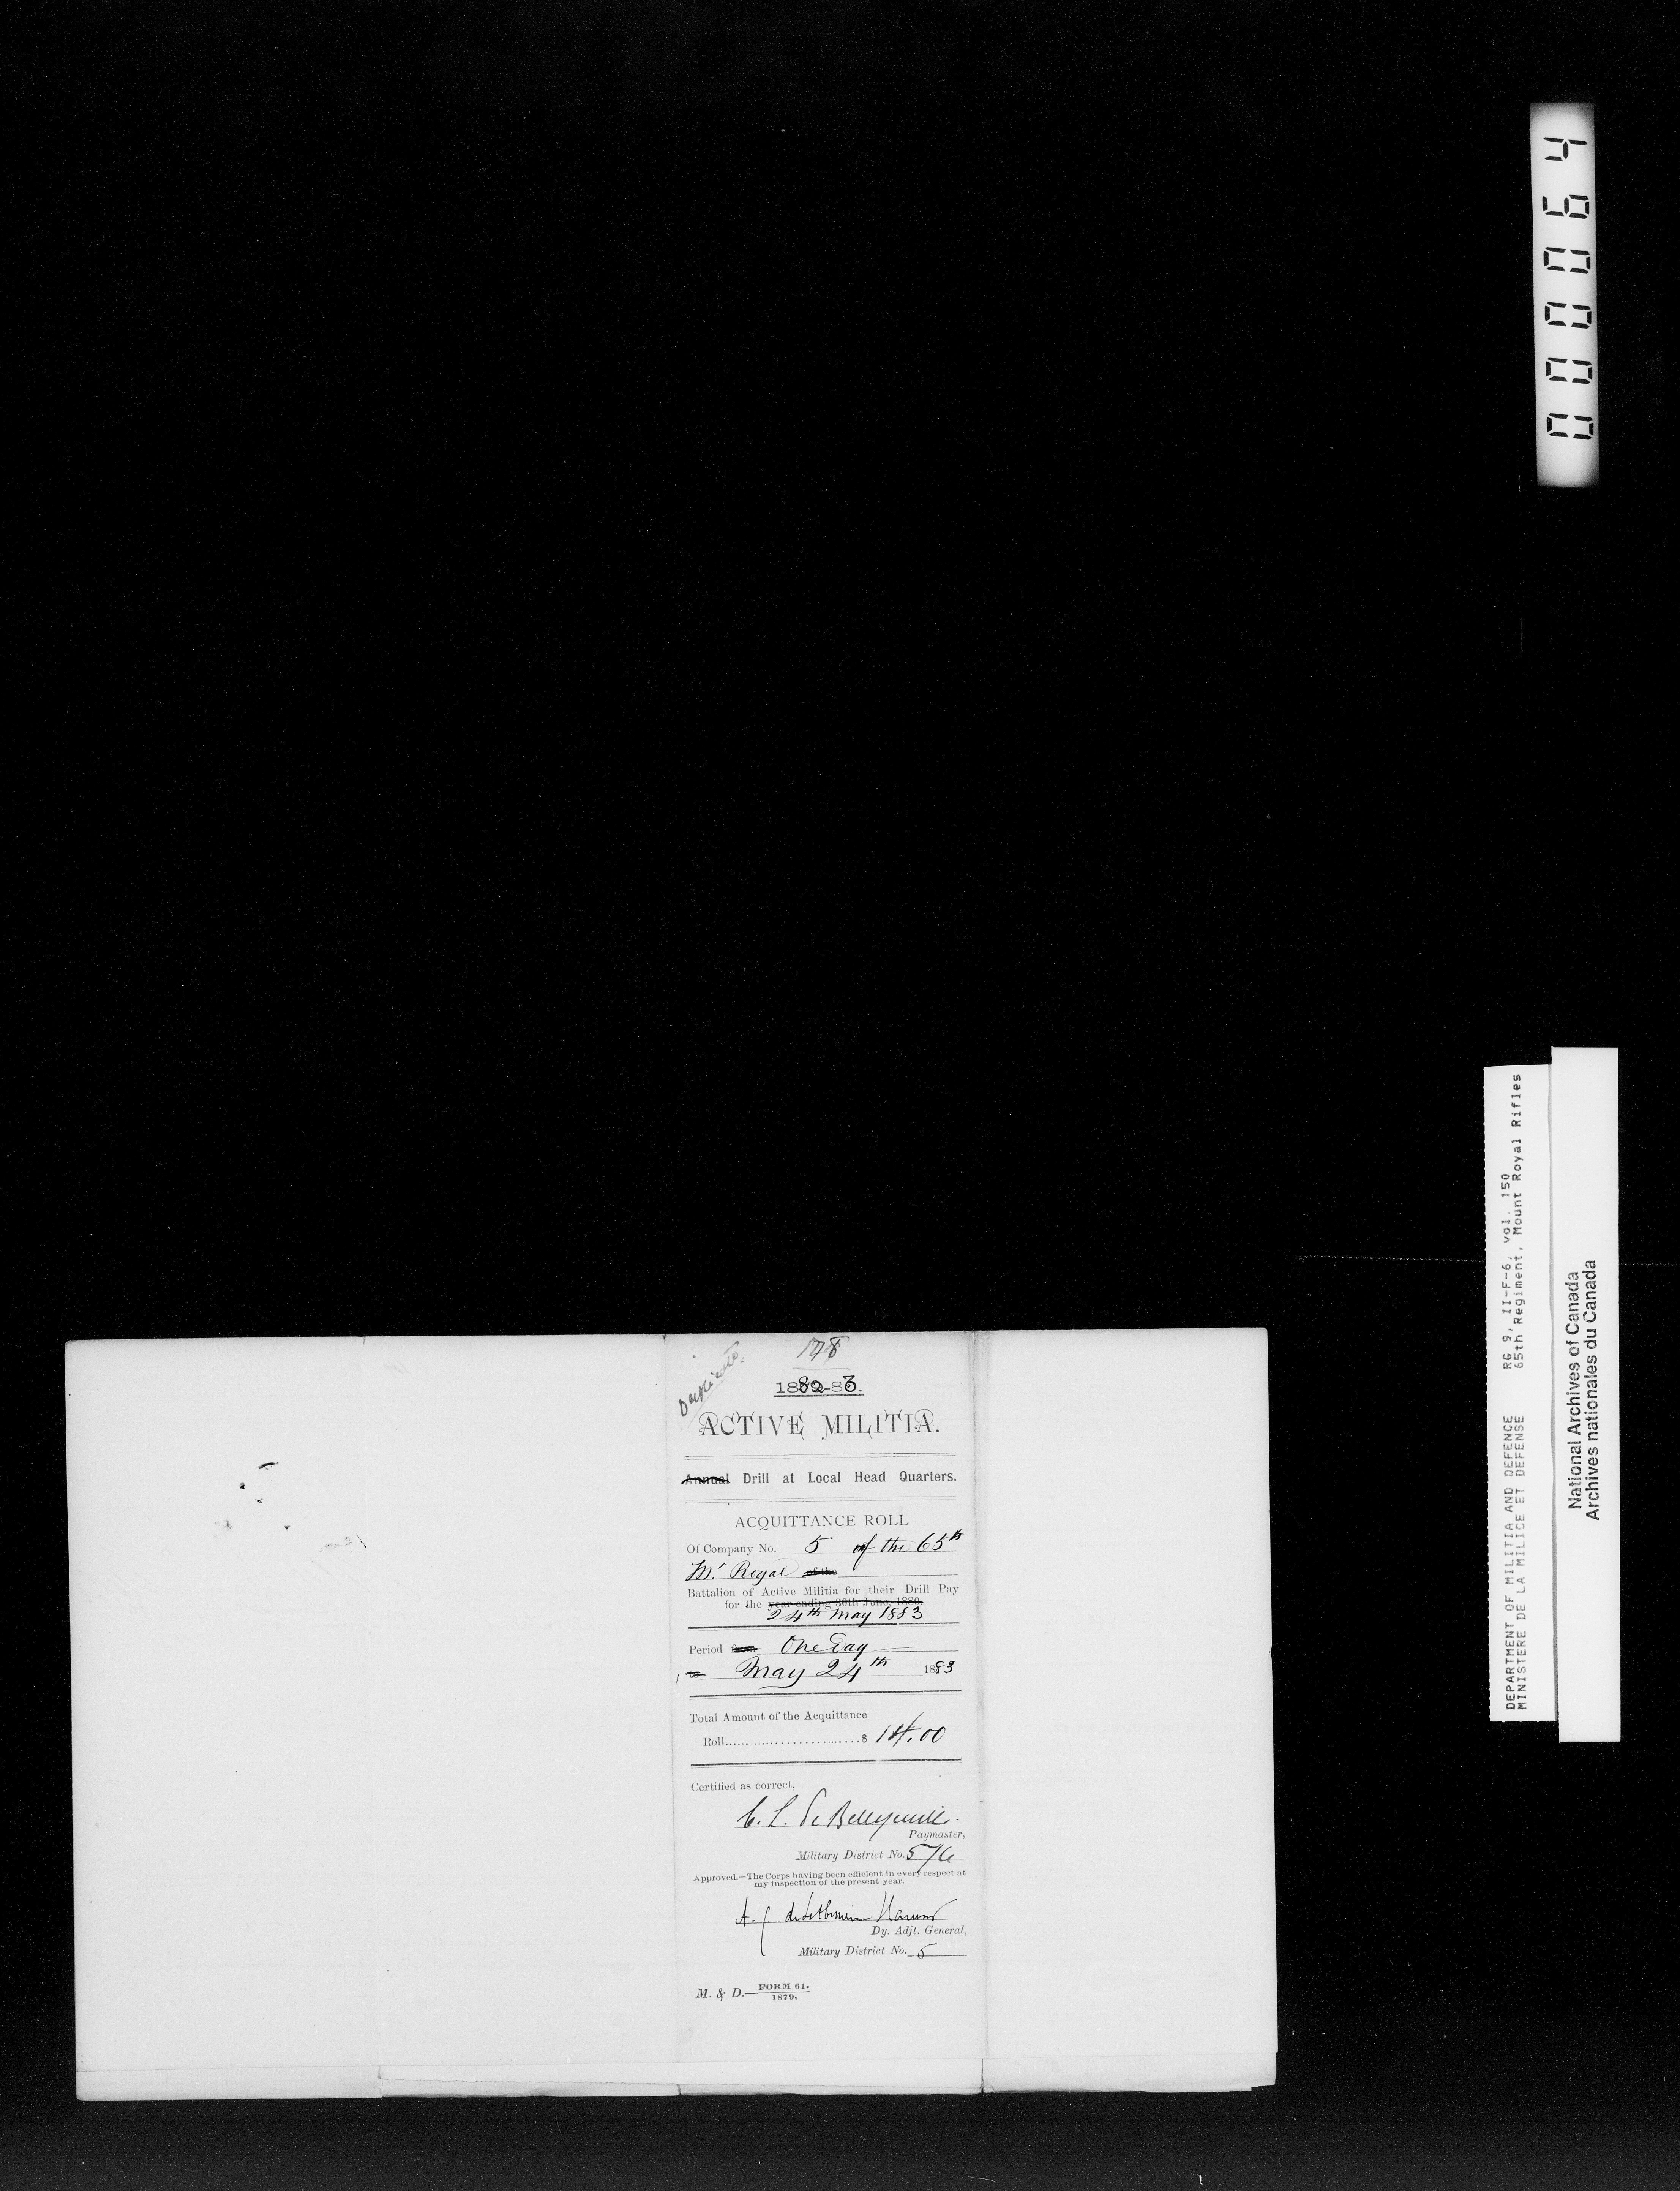 Duplicate.
178
1882-83.
ACTIVE MILITIA.
Annual Drill at Local Head Quarters.
ACQUITTANCE ROLL
Of Company No. 5 of the 65th
Mt Royal of the
Battalion of Active Militia for their Drill Pay
for the year ending 30th June, 1880.
24th May 1883
Period from One Day
to May 24th 1883
Total Amount of the Acquittance
Roll.....................$ 14.00
Certified as correct,
C. L. de Bellefeuille
Paymaster,
Military District No. 5/6
Approved.—The Corps having been efficient in every respect at
my inspection of the present year.
A. C. de Lotbinière Harwood
Dy. Adjt. General,
Military District No. 5
M. & D.—FORM 61.
1879.
000064
DEPARTMENT OF MILITIA AND DEFENCE RG 9, II-F-6, vol. 150
MINISTERE DE LA MILICE ET DEFENSE 65th Regiment, Mount Royal Rifles
National Archives of Canada
Archives nationales du Canada